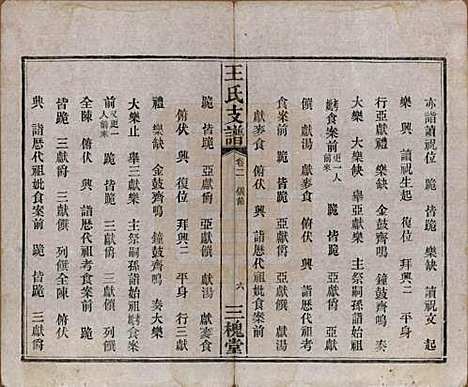 亦詣讀祝位 跪 皆跪 樂缺 讀祝文 起
樂 興 讀祝生起 復位 拜興二 平身
行亞獻禮 樂缺 金鼓齊鳴 鐘鼓齊鳴 奏
大樂缺 舉亞獻樂 主祭嗣孫詣始祖
妣食案前 更一人前來 跪 皆跪 亞獻爵 亞獻
饌 獻湯 獻麥食 俯伏 興 詣歷代祖考
食案前 跪 皆跪 亞獻爵 亞獻饌 獻湯
獻麥食 俯伏 興 詣歷代祖妣食案前
王氏支譜 卷二 儀節 六 三槐堂
跪 皆跪 亞獻爵 亞獻饌 獻湯 獻麥食
俯伏 興 復位 拜興二 平身 行三獻
禮 樂缺 金鼓齊鳴 鐘鼓齊鳴 奏大樂
大樂止 舉三獻樂 主祭嗣孫詣始祖妣食案
前 又更一人前來 跪 皆跪 三獻爵 三獻饌 列饌
全陳 俯伏 興 詣歷代祖考食案前 跪
皆跪 三獻爵 三獻饌 列饌全陳 俯伏
興 詣歷代祖妣食案前 跪 皆跪 三獻爵